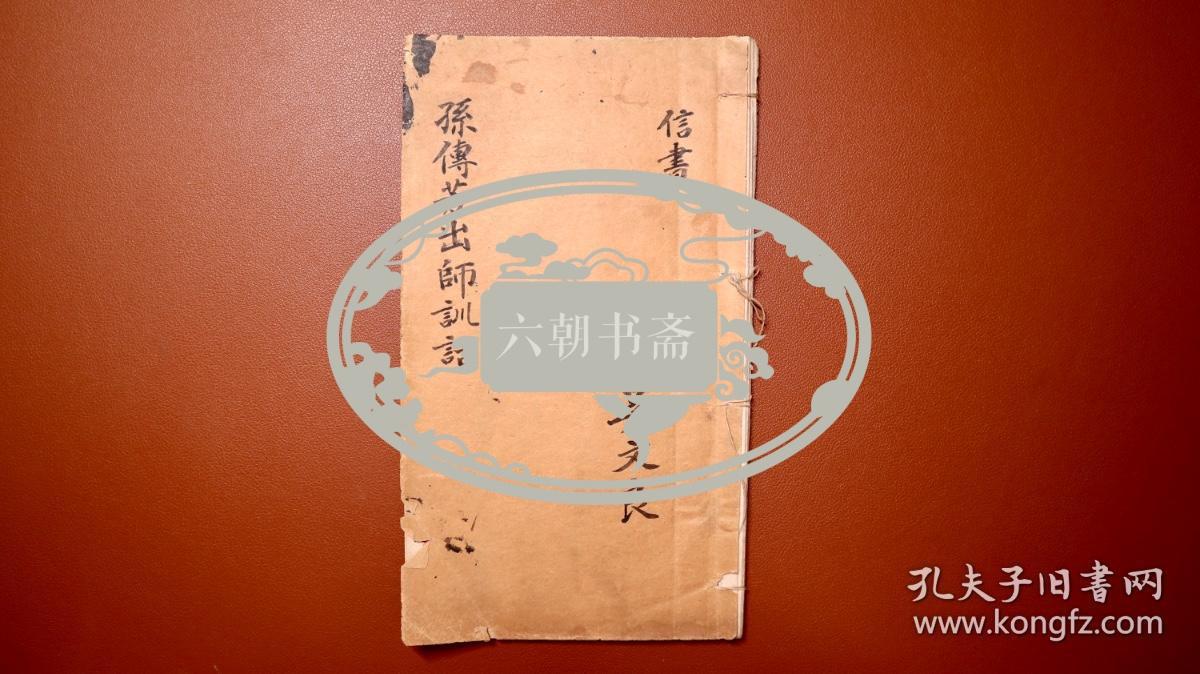 信書
文良
孫傳芳出師訓話
六朝书斋
孔夫子旧書网
www.kongfz.com